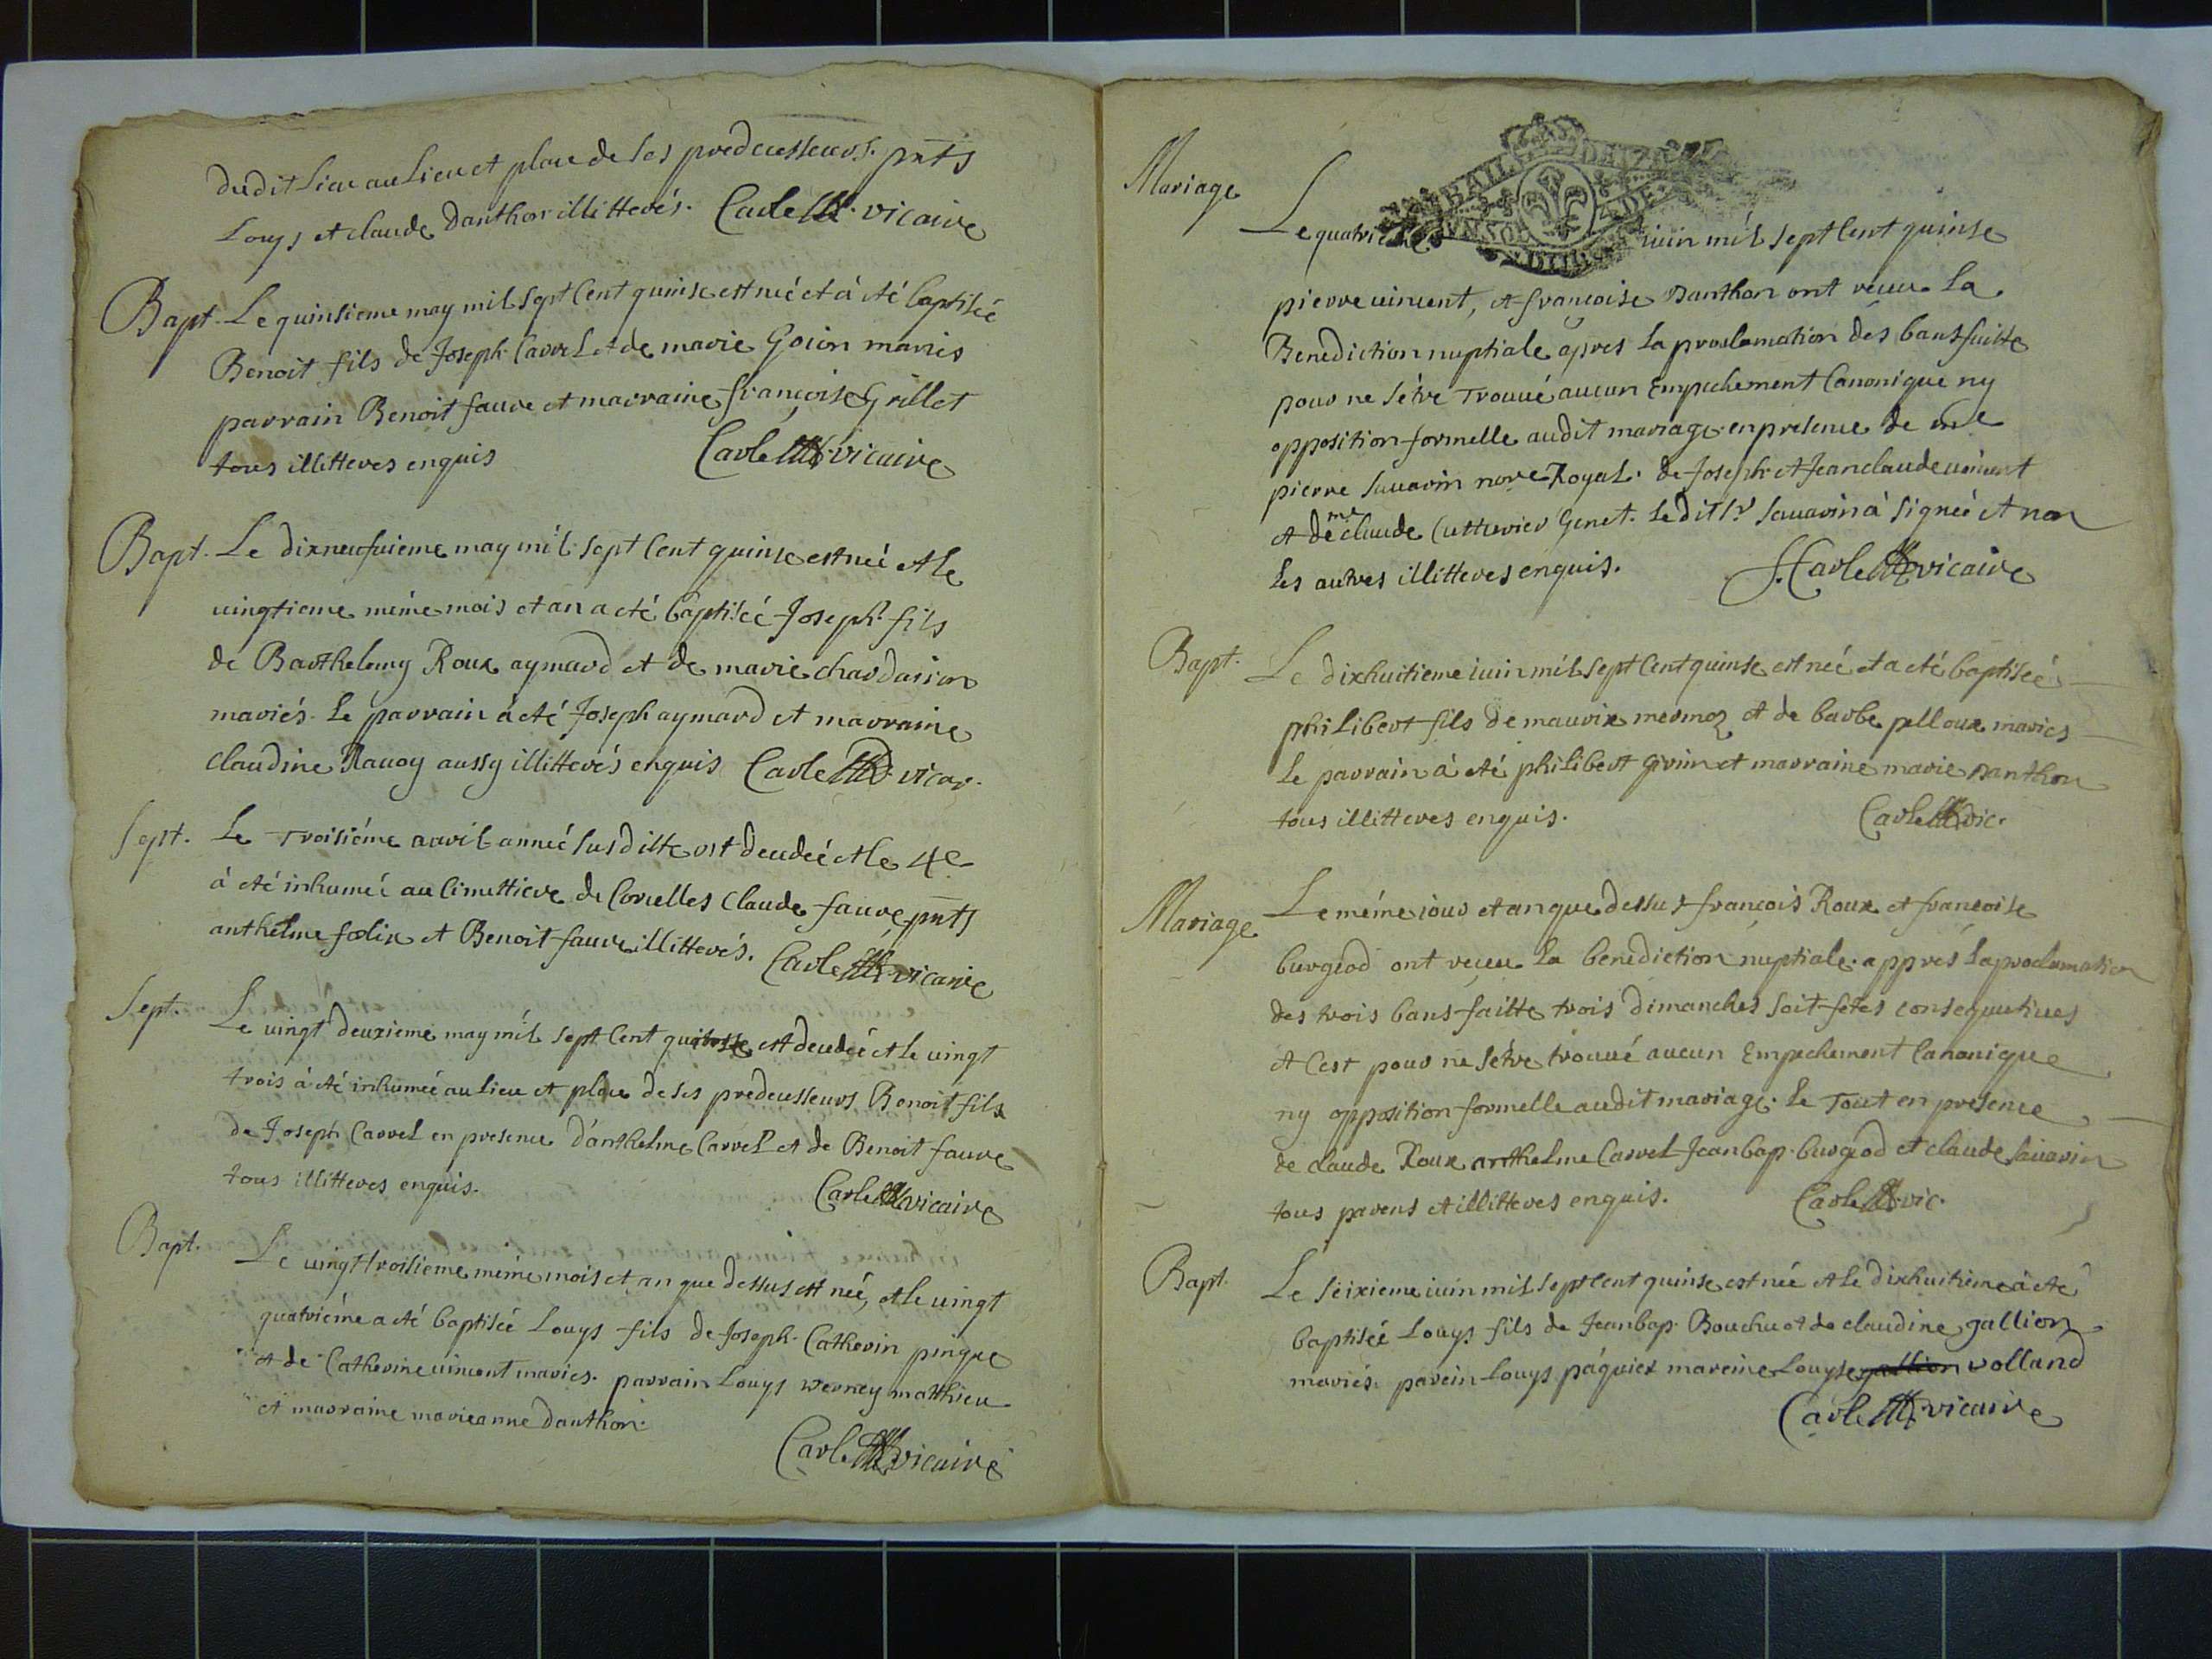 dudit lieu au lieu et place de ses predecesseurs. pnts
Louys et claude Danthon illitterés. Carle vicaire
Bapt. Le quinsieme may mil sept cent quinse est neé et à été baptiseé
Benoit fils de Joseph Carrel et de marie Goion mariés
parrain Benoit faure et marraine françoise Grillet
tous illitteres enquis Carle vicaire
Bapt. Le dixneufuieme may mil sept cent quinse est neé et le
uingtieme méme mois et an a eté baptiseé Joseph fils
de Barthelemy Roux aymard et de marie chardasion
mariés. Le parrain à eté Joseph aymard et marraine
claudine Rauoy aussy illitterés enquis Carle vicar.
Sept. Le troisiéme auril anneé susditte est decedeé et le 4e
à eté inhumeé au cimettiere de Corcelles Claude faure, pnts
anthelme foelix et Benoit faure illitterés. Carle vicaire
Sept. Le uingt deuxieme may mil sept cent est decedeé et le uingt
trois à eté inhumeé au lieu et place de ses predecesseurs Benoit fils
de Joseph Carrel en presence d'anthelme Carrel et de Benoit faure
tous illitteres enquis. Carle vicaire
Bapt. Le uingttroisieme méme mois et an que dessus est neé, et le uingt
quatriéme a eté baptiseé Louys fils de Joseph Catherin pingue
et de Catherine uincent maries. parrain Louys verney matthieu
et marraine marieanne Danthon.
Carle vicaire
Mariage Le quatrieme iuin mil sept cent quinse
pierre uincent, et françoise Danthon ont receu la
Benediction nuptiale apres la proclamation des bans faitte
pour ne sétre trouué aucun Empechement Canonique ny
opposition formelle audit mariage en presence de me
pierre Sauarin nore Royal. de Joseph et Jeanclaude uincent
et de me claude Cutturier Genet. Ledit sr Sauarin à signeé et non
les autres illitteres enquis. Carle vicaire
Bapt. Le dixhuitieme iuin mil sept cent quinse est neé et a eté baptiseé
philibert fils de maurix mermoz et de barbe pelloux maries
Le parrain à eté philibert et marraine marie Danthon
tous illitteres enquis. Carle vic.
Mariage Le méme iour et an que dessus françois Roux et françoise
burgeod ont receu la benediction nuptiale. appres la proclamation
des trois bans faitte trois dimanches soit fetes consequutiues
et cest pour ne sétre trouué aucun Empechement Canonique
ny opposition formelle audit mariage. Le Tout en presence
de claude Roux anthelme Carrel Jeanbap. burgeod et claude Sauarin
tous parens et illitteres enquis. Carle vic.
Bapt. Le seixieme iuin mil sept cent quinse est neé et le dixhuitieme à eté
baptiseé Louys fils de Jeanbap. Bouchu et de claudine gallion
mariés. parein Louys páquier mareine Louyse gallion volland
Carle vicaire